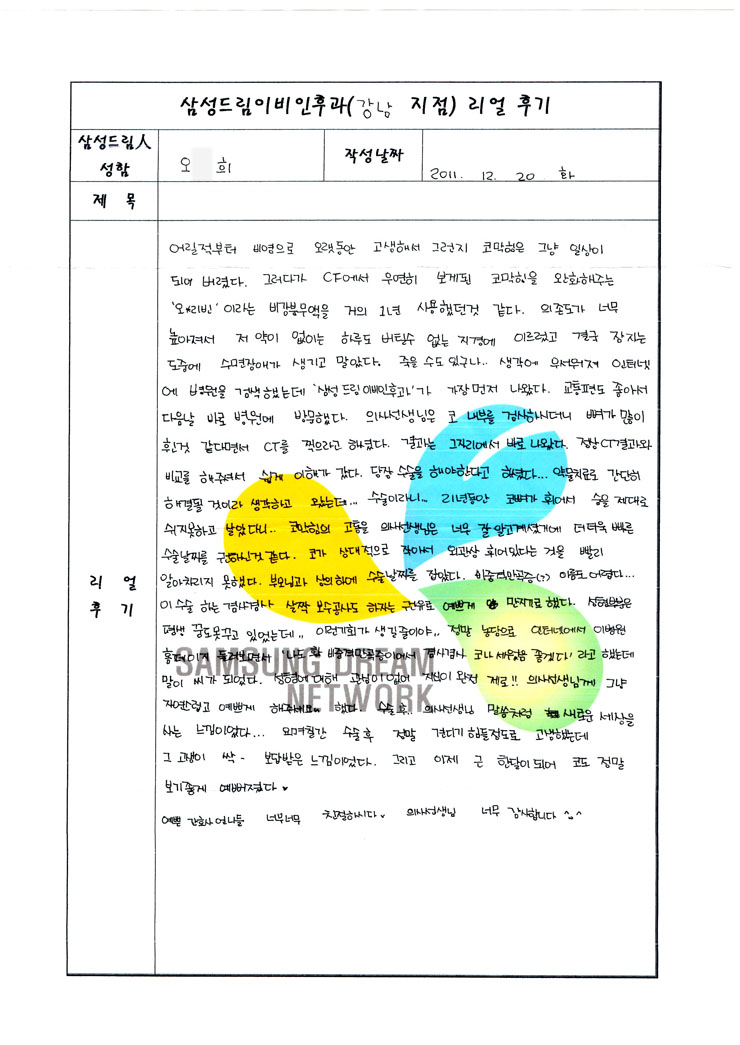 삼성드림이비인후과(강남 지점) 리얼 후기
삼성드림人 성함
오 희
작성날짜
2011. 12. 20 화
제 목
리 얼 후 기
어릴적부터 비염으로 오랫동안 고생해서 그런지 코막힘은 그냥 일상이
되어 버렸다. 그러다가 CF에서 우연히 보게된 코막힘을 완화해주는
'오트리빈' 이라는 비강분무액을 거의 1년 사용했던것 같다. 의존도가 너무
높아져서 저 약이 없이는 하루도 버틸수 없는 지경에 이르렀고 결국 잠자는
도중에 수면장애가 생기고 말았다. 죽을 수도 있구나.. 생각에 우선먼저 인터넷
에 병원을 검색했는데 '삼성드림이비인후과'가 가장먼저 나왔다. 교통편도 좋아서
다음날 바로 병원에 방문했다. 의사선생님은 코 내부를 검사하시더니 뼈가 많이
휜것 같다면서 CT를 찍으라고 하셨다. 결과는 그자리에서 바로 나왔다. 정상CT결과와
비교를 해주셔서 쉽게 이해가 갔다. 당장 수술을 해야한다고 하셨다... 약물치료로 간단히
해결될 것이라 생각하고 왔는데... 수술이라니.. 21년동안 코뼈가 휘어서 숨을 제대로
쉬지못하고 살았다니.. 코막힘의 고통을 의사선생님은 너무 잘 알고계셨기에 더더욱 빠른
수술날짜를 권하신것 같다. 코가 상대적으로 작아서 외관상 휘어있다는 것을 빨리
알아차리지 못했다. 부모님과 상의하에 수술날짜를 잡았다. 비중격만곡증(??) 이름도 어렵다...
이 수술 하는 겸사겸사 살짝 보수공사도 하자는 권유로 예쁘게 만지기로 했다. 성형부분은
평생 꿈도못꾸고 있었는데.. 이런기회가 생길줄이야.. 정말 농담으로 인터넷에서 이병원
홈페이지 둘러보면서 '나도 비중격만곡증이어서 겸사겸사 코나 세웠음 좋겠다' 라고 했는데
말이 씨가 되었다. 성형에 대해 관심이 없어 지식이 완전 제로!! 의사선생님께 그냥
자연럽고 예쁘게 해주세요.. 했다. 수술후.. 의사선생님 말씀처럼 새로운 세상을
사는 느낌이었다... 수술후 정말 견디기 힘들정도로 고생했는데
그 고생이 싹 - 보답받은 느낌이었다. 그리고 이제 근 한달이 되어 코도 정말
보기좋게 예뻐졌다 ♥
예쁜 간호사 언니들 너무너무 친절하시다♥ 의사선생님 너무 감사합니다 ^_^
SAMSUNG DREAM
NETWORK